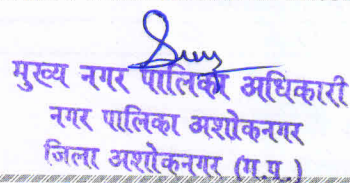 मुख्य नगर पालिका अधिकारी
नगर पालिका अशोकनगर
जिला अशोकनगर (म.प्र.)